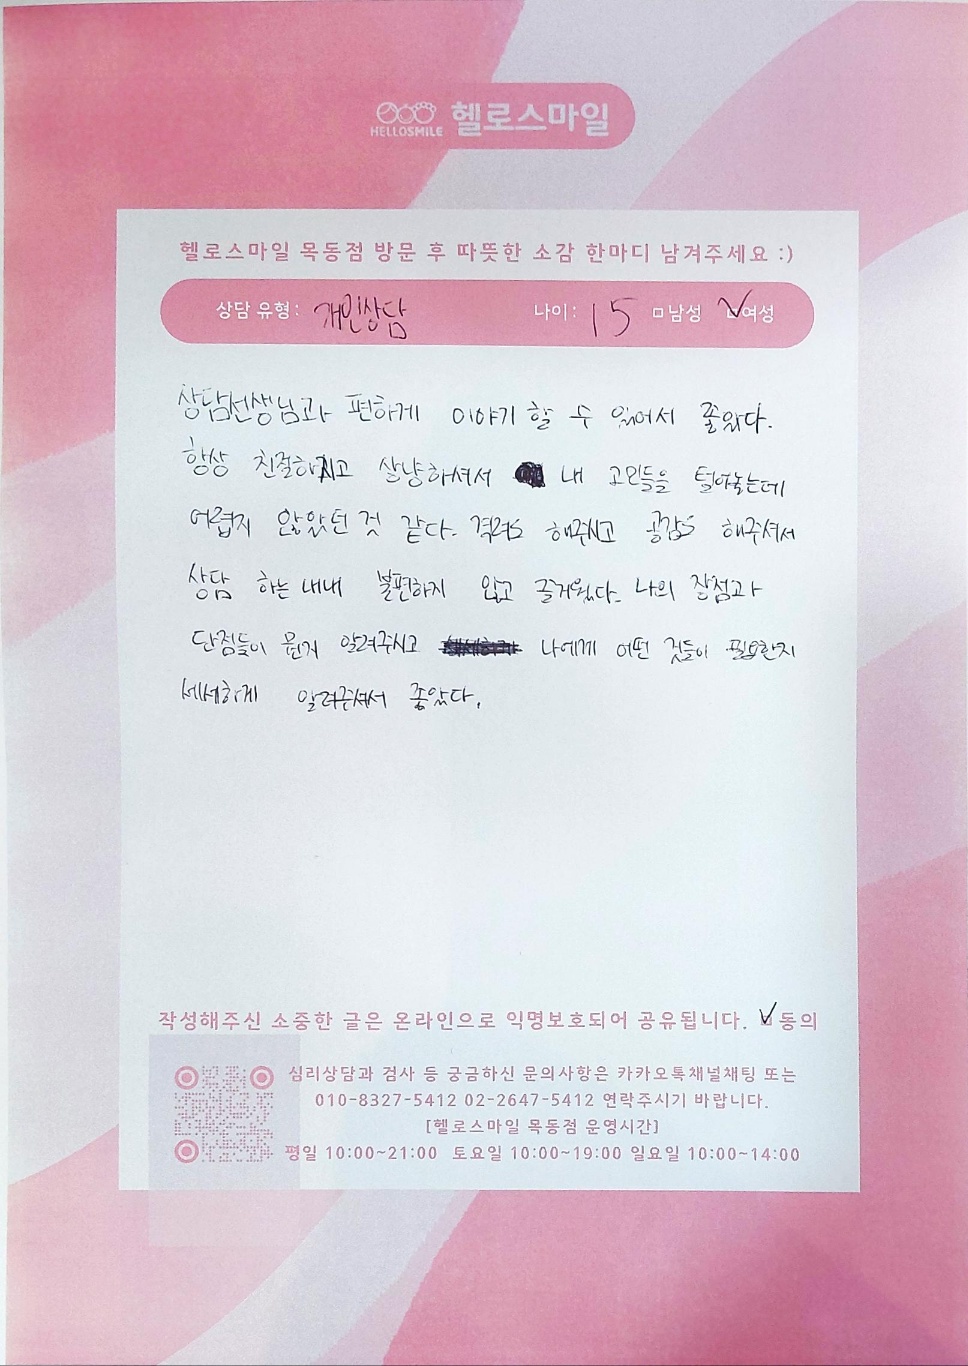 HELLOSMILE 헬로스마일
헬로스마일 목동점 방문 후 따뜻한 소감 한마디 남겨주세요 :)
상담 유형: 개인상담 나이: 15 □남성 ☑여성
상담선생님과 편하게 이야기 할 수 있어서 좋았다.
항상 친절하시고 상냥하셔서 내 고민들을 털어놓는데
어렵지 않았던 것 같다. 격려도 해주시고 공감도 해주셔서
상담 하는 내내 불편하지 않고 즐거웠다. 나의 장점과
단점들이 뭔지 알려주시고 나에게 어떤 것들이 필요한지
세세하게 알려주셔서 좋았다.
작성해주신 소중한 글은 온라인으로 익명보호되어 공유됩니다. ☑동의
심리상담과 검사 등 궁금하신 문의사항은 카카오톡채널채팅 또는
010-8327-5412 02-2647-5412 연락주시기 바랍니다.
[헬로스마일 목동점 운영시간]
평일 10:00~21:00 토요일 10:00~19:00 일요일 10:00~14:00